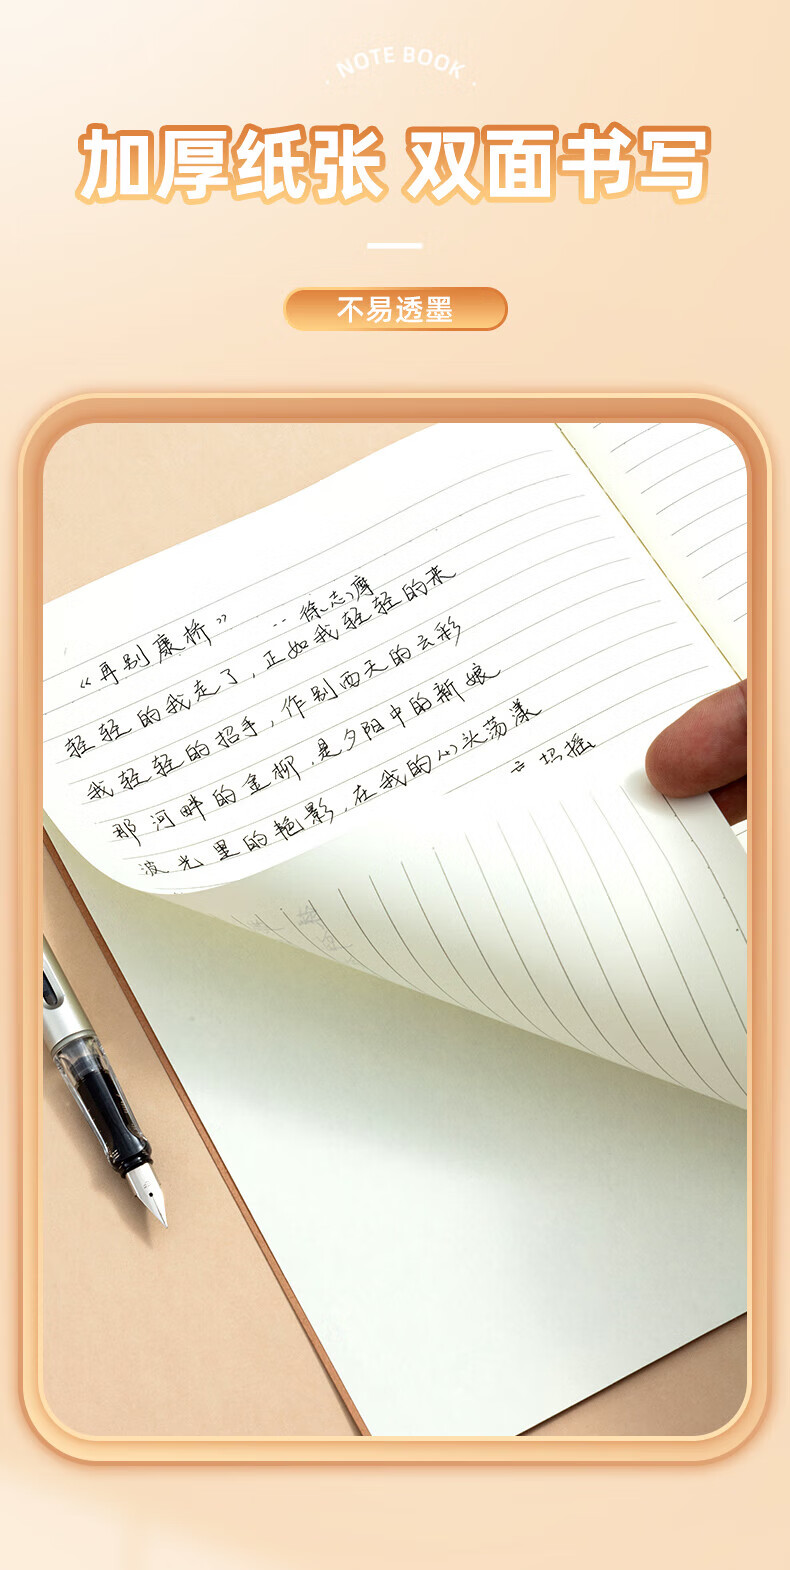 NOTE BOOK
加厚纸张 双面书写
不易透墨
《再别康桥》 -- 徐志摩
轻轻的我走了，正如我轻轻的来
我轻轻的招手，作别西天的云彩
那河畔的金柳，是夕阳中的新娘
波光里的艳影，在我的心头荡漾